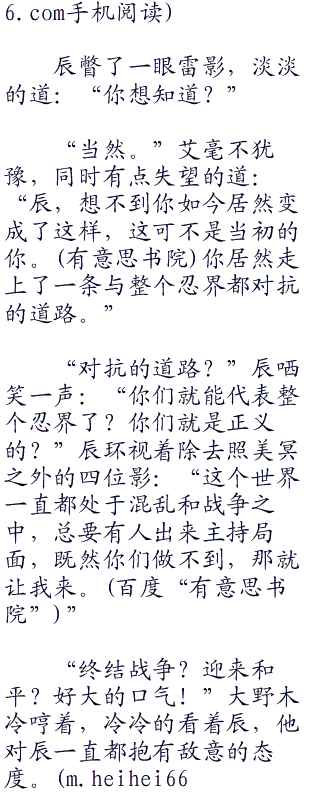 6.com手机阅读)
辰瞥了一眼雷影，淡淡
的道：“你想知道？”
“当然。”艾毫不犹
豫，同时有点失望的道：
“辰，想不到你如今居然变
成了这样，这可不是当初的
你。(有意思书院)你居然走
上了一条与整个忍界都对抗
的道路。”
“对抗的道路？”辰哂
笑一声：“你们就能代表整
个忍界了？你们就是正义
的？”辰环视着除去照美冥
之外的四位影：“这个世界
一直都处于混乱和战争之
中，总要有人出来主持局
面，既然你们做不到，那就
让我来。(百度“有意思书
院”)”
“终结战争？迎来和
平？好大的口气！”大野木
冷哼着，冷冷的看着辰，他
对辰一直都抱有敌意的态
度。(m.heihei66